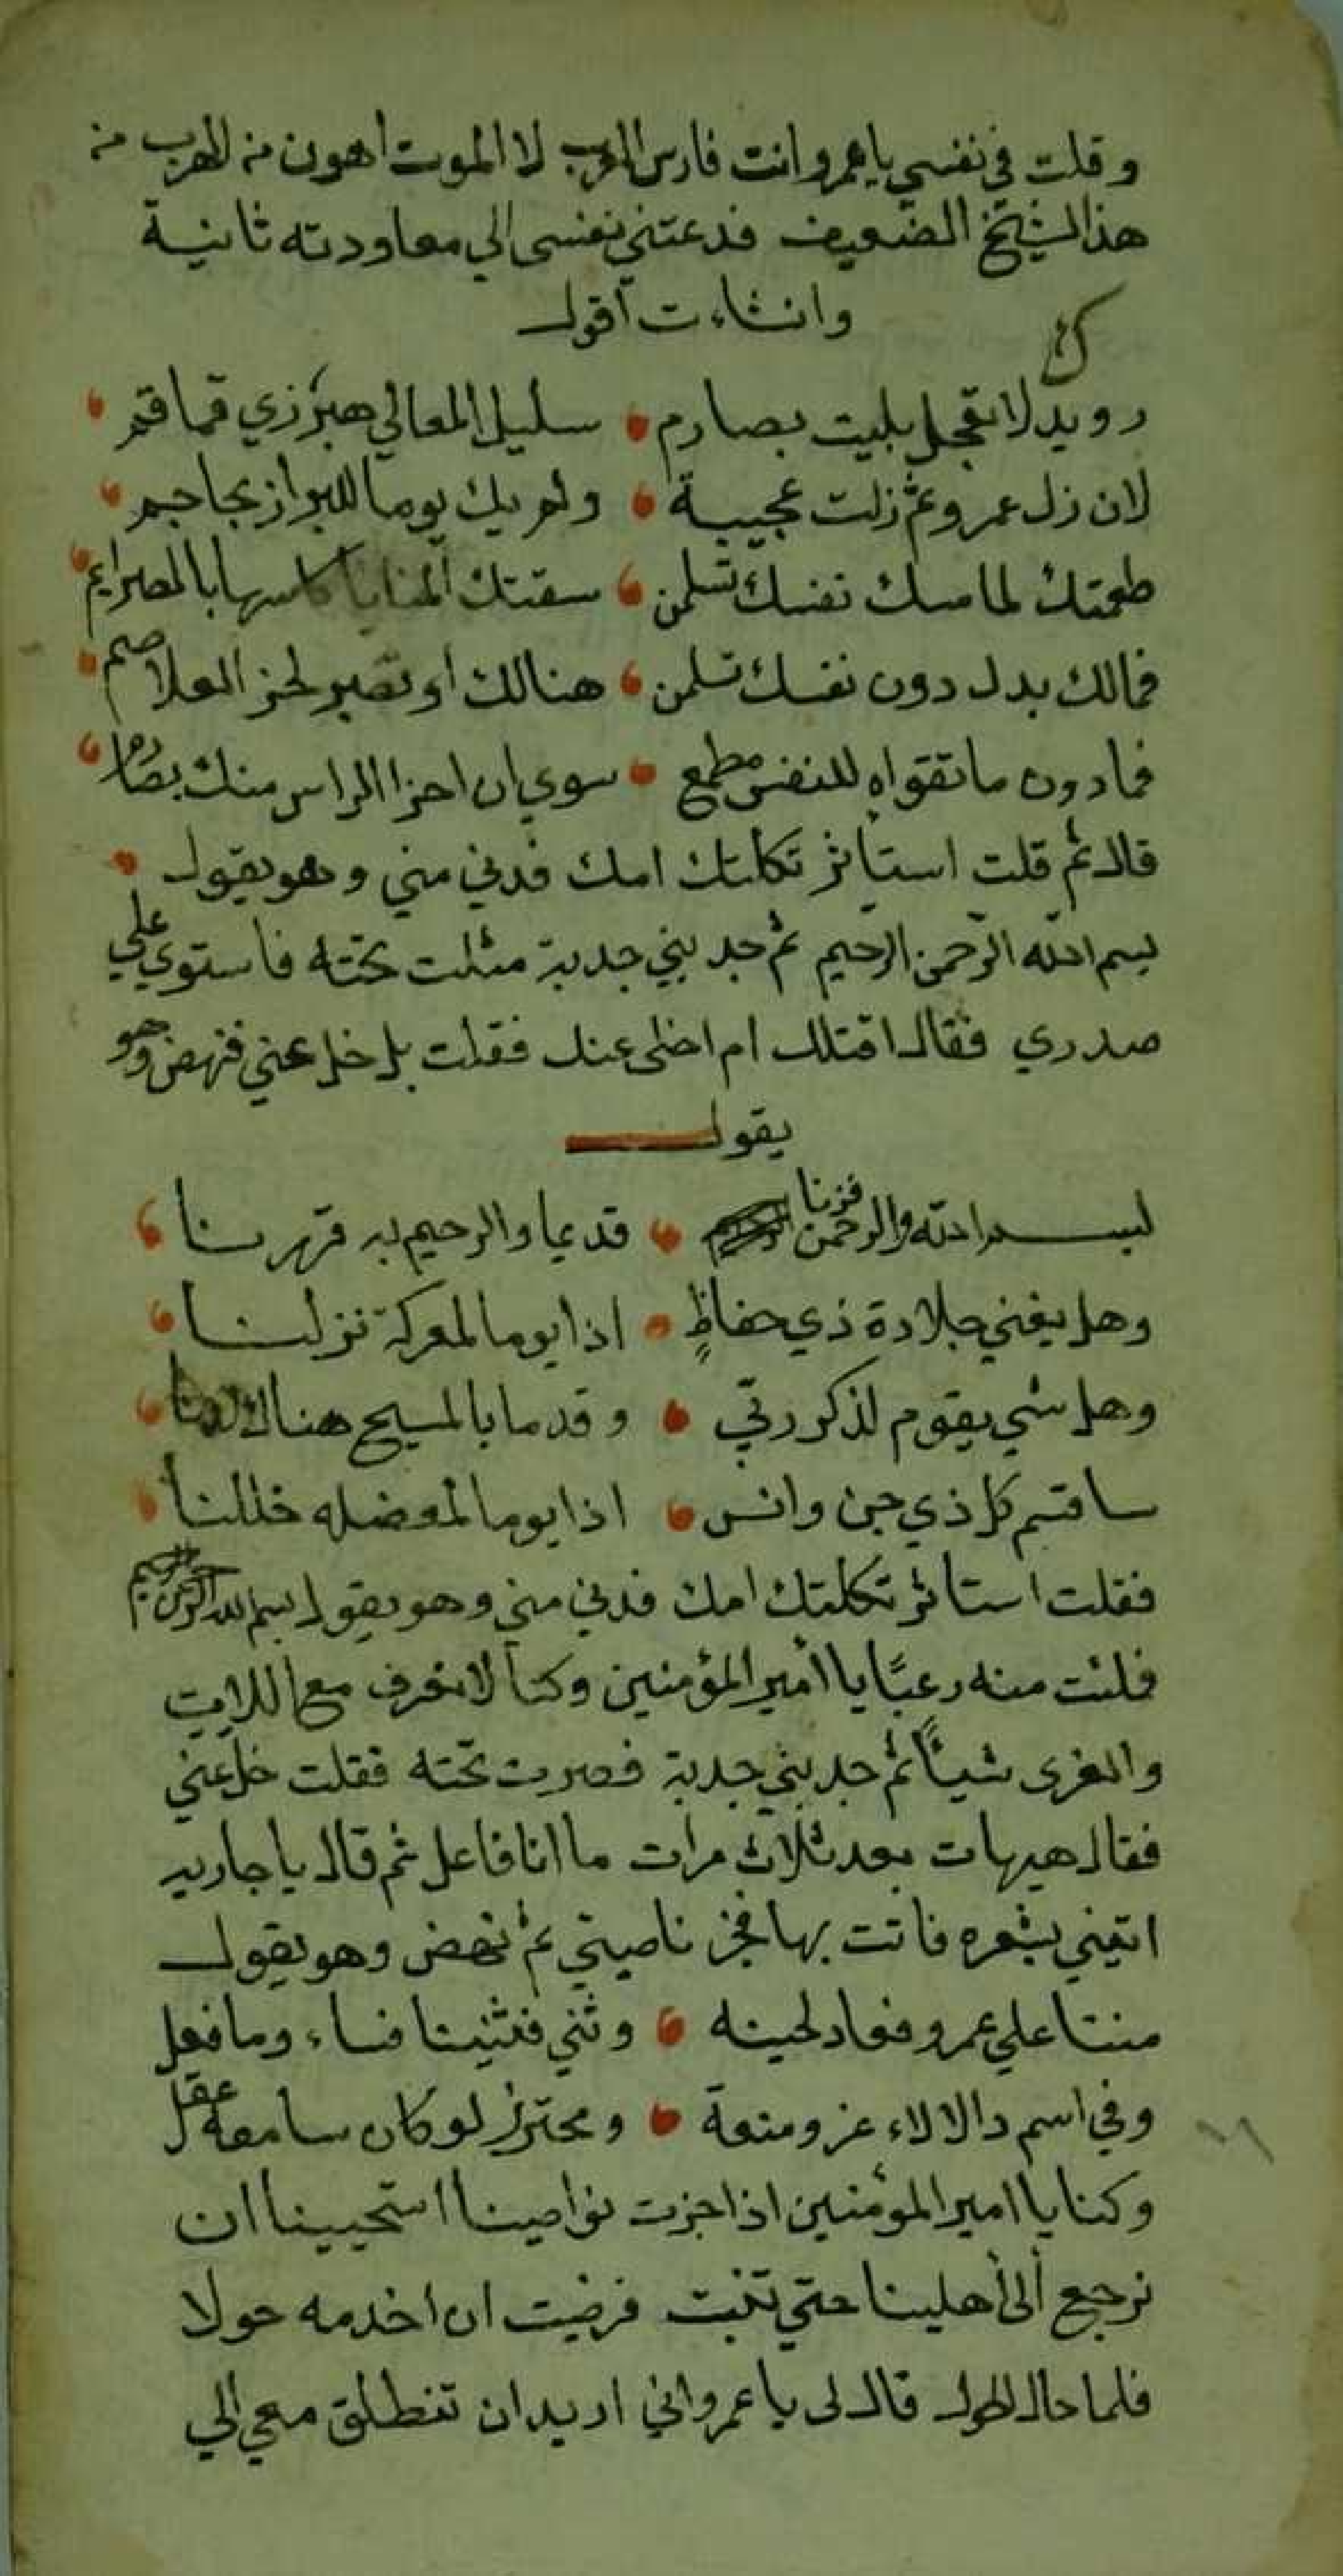 وقلت في نفسي يا عمرو انت فارس العرب لا الموت اهون من الهرب من
هذا الشيخ الضعيف فدعتني نفسي الي معاودته ثانية
وانشاءت اقول
رويدك لا تعجل بليت بصارم سليل المعالي هبرزي قماقم
لان زل عمرو ثم زلت عجيبة ولم يك يوما للبراز بحاجم
طعمتك لما منك نفسك تسلمن سقتك المنايا كاسها بالصرايم
فمالك بدل دون نفسك تسلمن هنالك او تصبر لحز العلاصم
فما دون ما تقواه للنفس مطمع سوي ان احز الراس منك بصارم
قال ثم قلت استاثر ثكلتك امك فدني مني وهو يقول
بسم الله الرحمن الرحيم ثم جدبني جدبة مثلت تحته فاستوي علي
صدري فقال اقتلك ام اخلى عنك فقلت بل خل عني فنهض وهو
يقول
ببسم الله والرحمن فزنا قديما والرحيم به قهرنا
وهل يغني جلادة ذي حفاظٍ اذا يوما لمعركة نزلنا
وهل شي يقوم لذكر ربّي وقدما بالمسيح هناك
ساقتم كل ذي جن وانس اذا يوما لمعضله خللنا
فقلت استاثر ثكلتك امك فدني مني وهو يقول بسم الله الرحمن الرحيم
فلئت منه رعبًا يا امير المؤمنين وكنا لا نعرف مع اللات
والعزى شيئًا ثم جدبني جدبة فصرت تحته فقلت خل عني
فقال هيهات بعد ثلاث مرات ما انا فاعل ثم قال يا جاريه
اتيني بشفره فاتت بها فجز ناصيتي ثم نهض وهو يقول
مننا علي عمرو فعاد لحينه وثني فثنينا فساء وما فعل
وفي اسم دالالاء عز ومنعة ومحترز لو كان سامعه عقل
وكنا يا امير المؤمنين اذا جزت نواصينا استحيينا ان
نرجع ألى أهلينا حتي تنبت فرضيت ان اخدمه حولا
فلما حال الحول قال لى يا عمرو اني اريد ان تنطلق معي الي